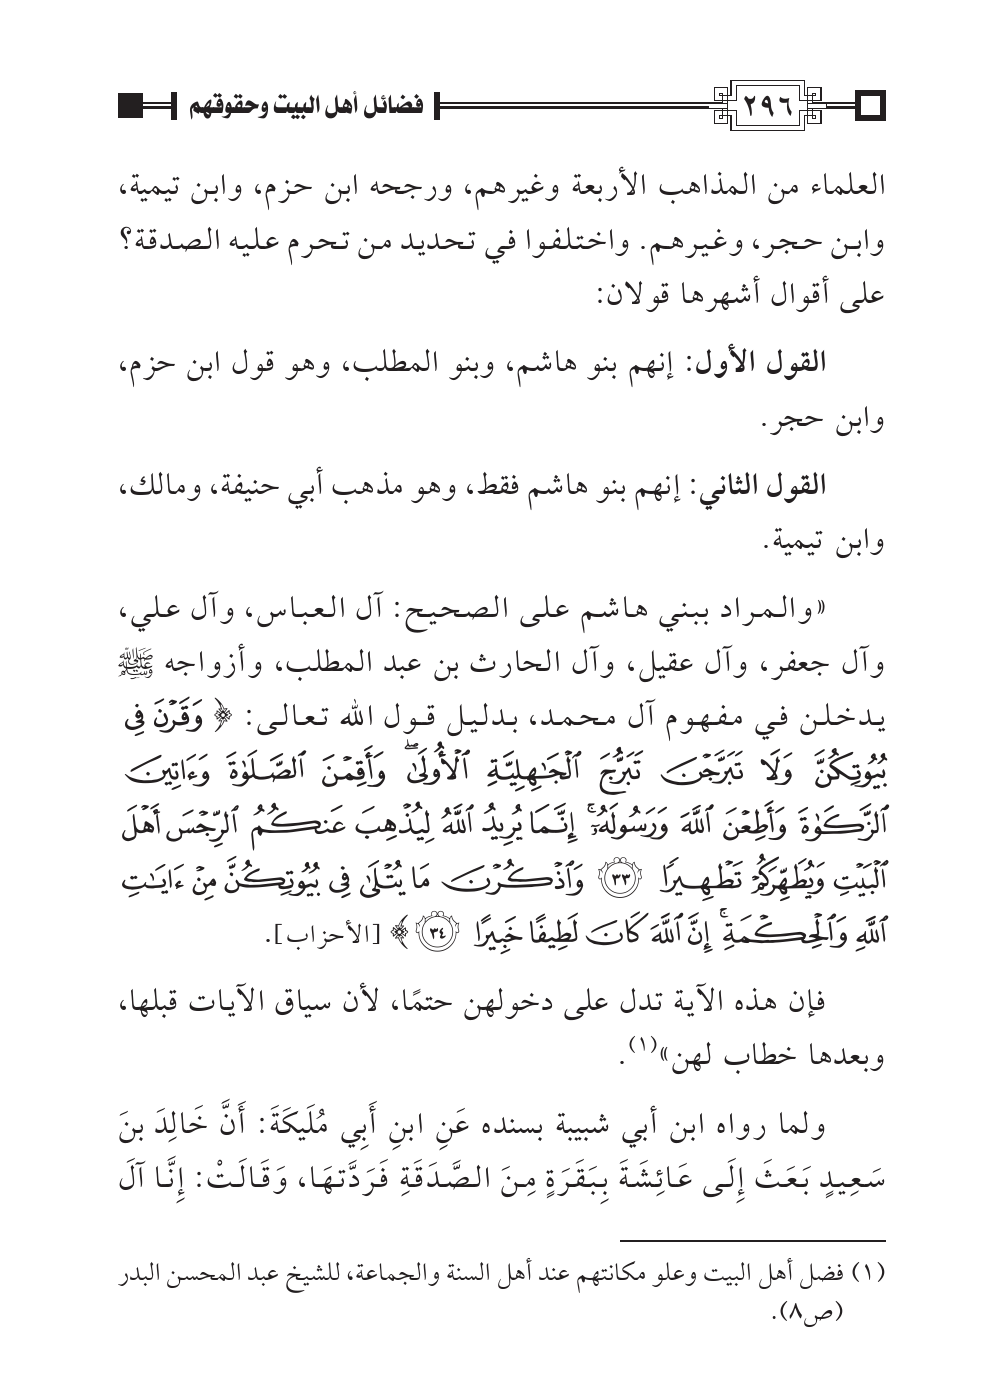 ٢٩٦ فضائل أهل البيت وحقوقهم
العلماء من المذاهب الأربعة وغيرهم، ورجحه ابن حزم، وابن تيمية،
وابن حجر، وغيرهم. واختلفوا في تحديد من تحرم عليه الصدقة؟
على أقوال أشهرها قولان:
القول الأول: إنهم بنو هاشم، وبنو المطلب، وهو قول ابن حزم،
وابن حجر.
القول الثاني: إنهم بنو هاشم فقط، وهو مذهب أبي حنيفة، ومالك،
وابن تيمية.
«والمراد ببني هاشم على الصحيح: آل العباس، وآل علي،
وآل جعفر، وآل عقيل، وآل الحارث بن عبد المطلب، وأزواجه ﷺ
يدخلن في مفهوم آل محمد، بدليل قول الله تعالى: ﴿ وَقَرْنَ فِى
بُيُوتِكُنَّ وَلَا تَبَرَّجْنَ تَبَرُّجَ ٱلْجَٰهِلِيَّةِ ٱلْأُولَىٰ ۖ وَأَقِمْنَ ٱلصَّلَوٰةَ وَءَاتِينَ
ٱلزَّكَوٰةَ وَأَطِعْنَ ٱللَّهَ وَرَسُولَهُۥٓ ۚ إِنَّمَا يُرِيدُ ٱللَّهُ لِيُذْهِبَ عَنكُمُ ٱلرِّجْسَ أَهْلَ
ٱلْبَيْتِ وَيُطَهِّرَكُمْ تَطْهِيرًا ٣٣ وَٱذْكُرْنَ مَا يُتْلَىٰ فِى بُيُوتِكُنَّ مِنْ ءَايَٰتِ
ٱللَّهِ وَٱلْحِكْمَةِ ۚ إِنَّ ٱللَّهَ كَانَ لَطِيفًا خَبِيرًا ٣٤ ﴾ [الأحزاب].
فإن هذه الآية تدل على دخولهن حتمًا، لأن سياق الآيات قبلها،
وبعدها خطاب لهن»(١).
ولما رواه ابن أبي شبيبة بسنده عَنِ ابنِ أَبِي مُلَيكَةَ: أَنَّ خَالِدَ بنَ
سَعِيدٍ بَعَثَ إِلَى عَائِشَةَ بِبَقَرَةٍ مِنَ الصَّدَقَةِ فَرَدَّتهَا، وَقَالَتْ: إِنَّا آلَ
(١) فضل أهل البيت وعلو مكانتهم عند أهل السنة والجماعة، للشيخ عبد المحسن البدر
(ص٨).